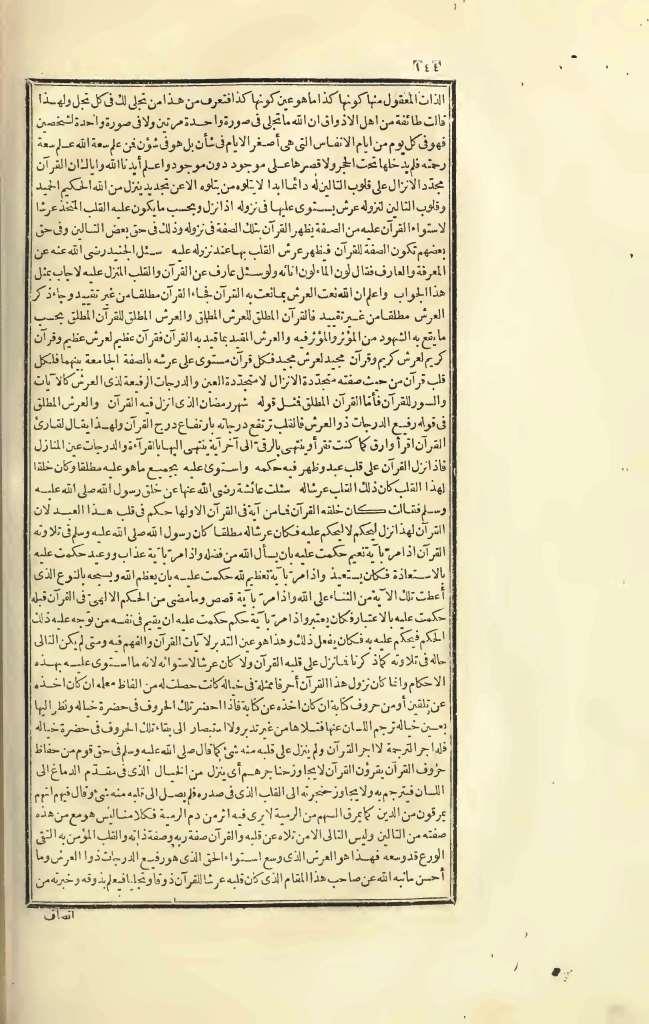 ٢٤٤
الذات المعقول منها كونها كذا ما هو عين كونها كذا فتعرف من هذا من تجلى لك فى كل تجل ولهذا
قالت طائفة من اهل الاذواق ان الله ما تجلى فى صورة واحدة مرتين ولا فى صورة واحدة لشخصين
فهو فى كل يوم من ايام الانفاس التى هى أصغر الايام فى شأن بل هو فى شؤن فمن علم سعة الله علم سعة
رحمته فلم يدخلها تحت الحجر ولا قصرها على موجود دون موجود واعلم أيدنا الله واياك ان القرآن
مجدّد الانزال على قلوب التالين له دائما ابدا لا يتلوه من يتلوه الا عن تجديد تنزل من الله الحكيم الحميد
وقلوب التالين لنزوله عرش يستوى عليها فى نزوله اذا نزل وبحسب ما يكون عليه القلب المتخذ عرشا
لاستواء القرآن عليه من الصفة يظهر القرآن بتلك الصفة فى نزوله وذلك فى حق بعض التالين وفى حق
بعضهم تكون الصفة للقرآن فيظهر عرش القلب بها عند نزوله عليه سئل الجنيد رضى الله عنه عن
المعرفة والعارف فقال لون الماء لون انائه ولو سئل عارف عن القرآن والقلب المنزل عليه لاجاب بمثل
هذا الجواب واعلم ان الله نعت العرش بما نعت به القرآن فجاء القرآن مطلقا من غير تقييد وجاء ذكر
العرش مطلقا من غير تقييد فالقرآن المطلق للعرش المطلق والعرش المطلق للقرآن المطلق بحسب
ما يقع به الشهود من المؤثر والمؤثر فيه والعرش المقيد بما قيد به القرآن فقرآن عظيم لعرش عظيم وقرآن
كريم لعرش كريم وقرآن مجيد لعرش مجيد فكل قرآن مستوى على عرشه بالصفة الجامعة بينهما فلكل
قلب قرآن من حيث صفته متجددة الانزال لا متجدّدة العين والدرجات الرفيعة لذى العرش كالآيات
والسور للقرآن فأمّا القرآن المطلق فمثل قوله شهر رمضان الذى انزل فيه القرآن والعرش المطلق
فى قوله رفيع الدرجات ذو العرش فالقلب ترتفع درجاته بارتفاع درج القرآن ولهذا يقال لقارئ
القرآن اقرأ وارق كما كنت تقرأ وينتهى بالرقىّ الى آخر آية ينتهى اليها بالقراءة والدرجات عين المنازل
فاذا نزل القرآن على قلب عبد وظهر فيه حكمه واستوى عليه بجميع ما هو عليه مطلقا وكان خلقا
لهذا القلب كان ذلك القلب عرشا له سئلت عائشة رضى الله عنها عن خلق رسول الله صلى الله عليه
وسلم فقالت كان خلقه القرآن فما من آية فى القرآن الا ولها حكم فى قلب هذا العبد لان
القرآن لهذا نزل ليحكم لا ليحكم عليه فكان عرشا له مطلقا كان رسول الله صلى الله عليه وسلم فى تلاوته
القرآن اذا مرّ بآية نعيم حكمت عليه بان يسأل الله من فضله واذا مرّ بآية عذاب ووعيد حكمت عليه
بالاستعاذة فكان يستعيذ واذا مرّ بآية تعظيم لله حكمت عليه بان يعظم الله ويسبحه بالنوع الذى
أعطت تلك الآية من الثناء على الله واذا مرّ بآية قصص وما مضى من الحكم الالهىّ فى القرآن قبله
حكمت عليه بالاعتبار فكان يعتبر واذا مرّ بآية حكم حكمت عليه ان يقيم فى نفسه من توجه عليه ذلك
الحكم فيحكم عليه به فكان يفعل ذلك وهذا هو عين التدبر لآيات القرآن والفهم فيه ومتى لم يكن التالى
حاله فى تلاوته كما ذكرنا فما نزل على قلبه القرآن ولا كان عرشا لاستوائه لانه ما استوى عليه بهذه
الاحكام وانما كان نزول هذا القرآن أحرفا ممثلة فى خياله كانت حصلت له من الفاظ معلمه ان كان اخذه
عن تلقين أو من حروف كتابة ان كان اخذه عن كتابة فاذا احضر تلك الحروف فى حضرة خياله ونظر اليها
بعين خياله ترجم اللسان عنها فتلاها من غير تدبر ولا استبصار الى بقاء تلك الحروف فى حضرة خياله
فله اجر الترجمة لا اجر القرآن ولم ينزل على قلبه منه شئ كما قال صلى الله عليه وسلم فى حق قوم من حفاظ
حروف القرآن يقرؤن القرآن لا يجاوز حناجرهم أى ينزل من الخيال الذى فى مقدّم الدماغ الى
اللسان فيترجم به ولا يجاوز حنجرته الى القلب الذى فى صدره فلم يصل الى قلبه منه شئ وقال فيهم انهم
يمرقون من الدين كما يمرق السهم من الرمية لا يرى فيه اثر من دم الرمية فكلامنا ليس هو مع من هذه
صفته من التالين وليس التالى الا من تلاه عن قلبه والقرآن صفة ربه وصفة ذاته والقلب المؤمن به التقى
الورع قد وسعه فهذا هو العرش الذى وسع استواء الحق الذى هو رفيع الدرجات ذوا العرش وما
أحسن ما نبه الله عن صاحب هذا المقام الذى كان قلبه عرشا للقرآن ذوقا وتجليا فيعلم بذوقه وخبرته من
اتصاف